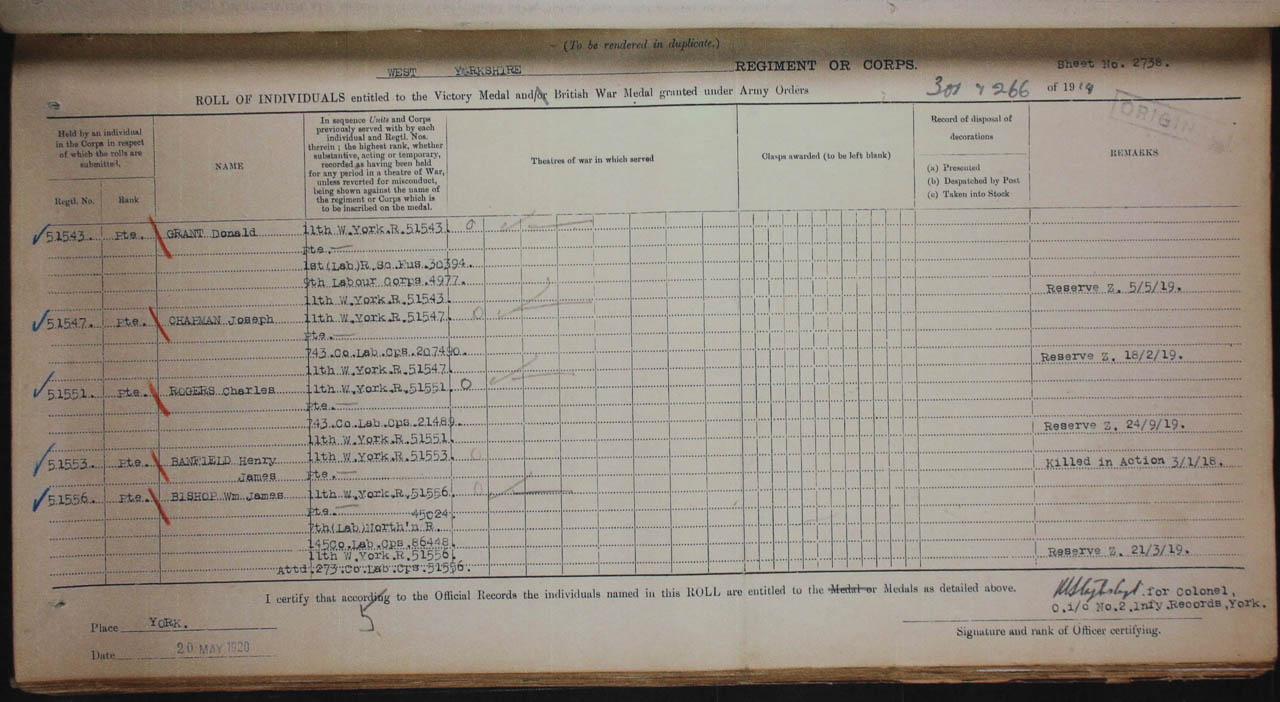 (To be rendered in duplicate.)
WEST YORKSHIRE REGIMENT OR CORPS. Sheet No. 2738.
ROLL OF INDIVIDUALS entitled to the Victory Medal and/or British War Medal granted under Army Orders 301 & 266 of 1919
ORIGIN
Held by an individual in the Corps in respect of which the rolls are submitted.
Regtl. No. Rank
NAME
In sequence Units and Corps
previously served with by each
individual and Regtl. Nos.
therein; the highest rank, whether
substantive, acting or temporary,
recorded as having been held
for any period in a theatre of War,
unless reverted for misconduct,
being shown against the name of
the regiment or Corps which is
to be inscribed on the medal.
Theatres of war in which served
Clasps awarded (to be left blank)
Record of disposal of
decorations
(a) Presented
(b) Despatched by Post
(c) Taken into Stock
REMARKS
51543. Pte. GRANT Donald 11th W.York.R.51543.
Pte.—
1st(Lab)R.Sc.Fus.30394.
9th Labour Corps.4977.
11th W.York.R.51543. Reserve Z. 5/5/19.
51547. Pte. CHAPMAN Joseph 11th W.York.R.51547.
Pte.—
743.Co.Lab.Cps.207490. Reserve Z. 18/2/19.
11th W.York.R.51547.
51551. Pte. ROGERS Charles 11th W.York.R.51551.
Pte.—
743.Co.Lab.Cps.21489. Reserve Z. 24/9/19.
11th W.York.R.51551.
51553. Pte. BANFIELD Henry 11th W.York.R.51553. Killed in Action 3/1/18.
James Pte.—
51556. Pte. BISHOP Wm James 11th W.York.R.51556.
Pte. 45024.
7th(Lab)North'n R.
145Co.Lab.Cps.86448.
11th W.York.R.51556. Reserve Z. 21/3/19.
Attd.273.Co.Lab.Cps.51556.
I certify that according to the Official Records the individuals named in this ROLL are entitled to the Medal or Medals as detailed above.
for Colonel,
O.i/c No.2.Infy.Records,York.
5
Place YORK.
Signature and rank of Officer certifying.
Date 20 MAY 1920